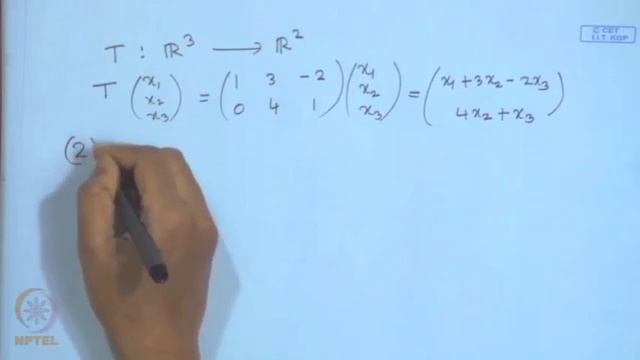 © CET
I.I.T. KGP
T : ℝ³ ⟶ ℝ²
T (x₁ x₂ x₃) = (1 3 -2 0 4 1) (x₁ x₂ x₃) = (x₁ + 3x₂ - 2x₃ 4x₂ + x₃)
(2)
NPTEL